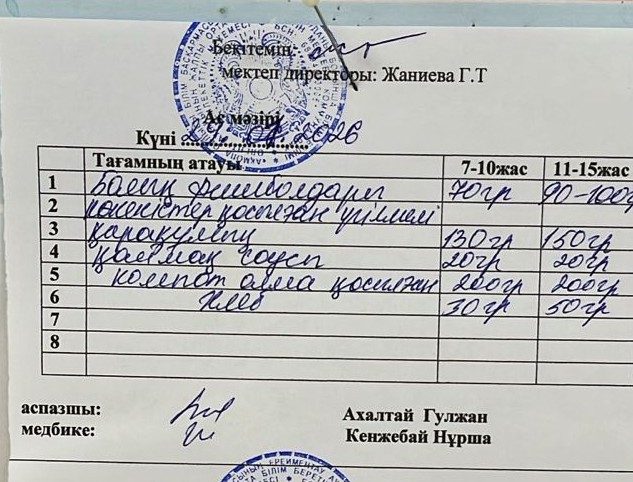 Бекітемін
мектеп директоры: Жаниева Г.Т
Ас мәзірі
Күні 29.04.2026
Тағамның атауы 7-10жас 11-15жас
1 Балық фишболдары 70гр 90-100
2 көкөністер қосылған үгілмелі
3 қарақұмық 130гр 150гр
4 қаймақ соусы 20гр 20гр
5 компот алма қосылған 200гр 200гр
6 Хлеб 30гр 50гр
7
8
аспазшы: Ахалтай Гулжан
медбике: Кенжебай Нұрша